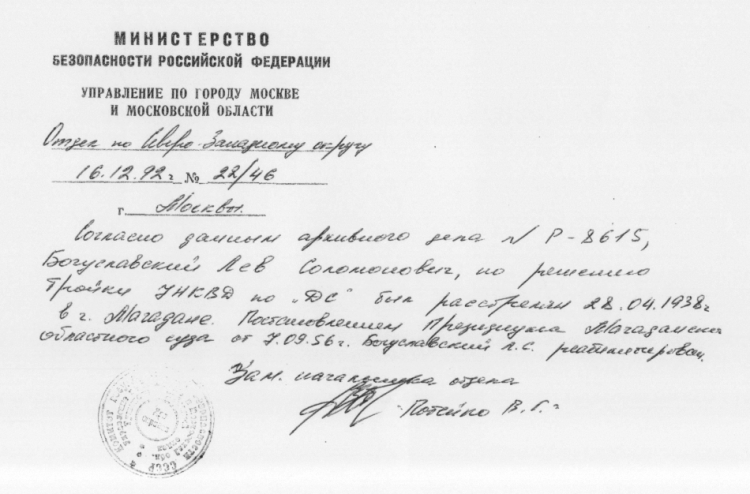 МИНИСТЕРСТВО
БЕЗОПАСНОСТИ РОССИЙСКОЙ ФЕДЕРАЦИИ
УПРАВЛЕНИЕ ПО ГОРОДУ МОСКВЕ
И МОСКОВСКОЙ ОБЛАСТИ
Отдел по Северо-Западному округу
16.12.92г № 22/46
г. Москва
Согласно данным архивного дела N Р-8615,
Богуславский Лев Соломонович, по решению
Тройки УНКВД по „ДС" был расстрелян 28.04.1938г
в г. Магадане. Постановлением Президиума Магаданского
областного суда от 7.09.56г. Богуславский Л.С. реабилитирован.
Зам. начальника отдела
Потейко В.Г.
СССР